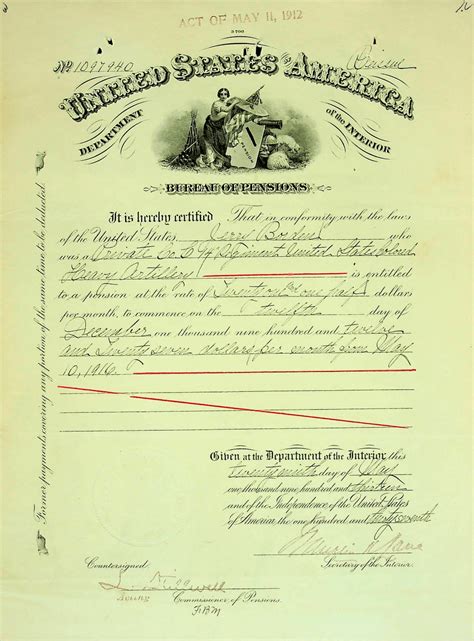 ACT OF MAY 11, 1912
3-700
No 1097940
UNITED STATES OF AMERICA
DEPARTMENT
of the INTERIOR
PENSION
BUREAU OF PENSIONS
It is hereby certified That in conformity with the laws
of the United States Jerry who
was a Private Co. Regiment United States Colored
Heavy Artillery is entitled
to a pension at the rate of Twenty one half dollars
per month, to commence on the Twelfth day of
December one thousand nine hundred and twelve
and Twenty seven dollars per month from May
10, 1916.
Former payments covering any portion of the same time to be deducted.
Given at the Department of the Interior this
twenty ninth day of May
one thousand nine hundred and thirteen
and of the Independence of the United States
of America the one hundred and thirty seventh
Secretary of the Interior.
Countersigned.
Commissioner of Pensions.